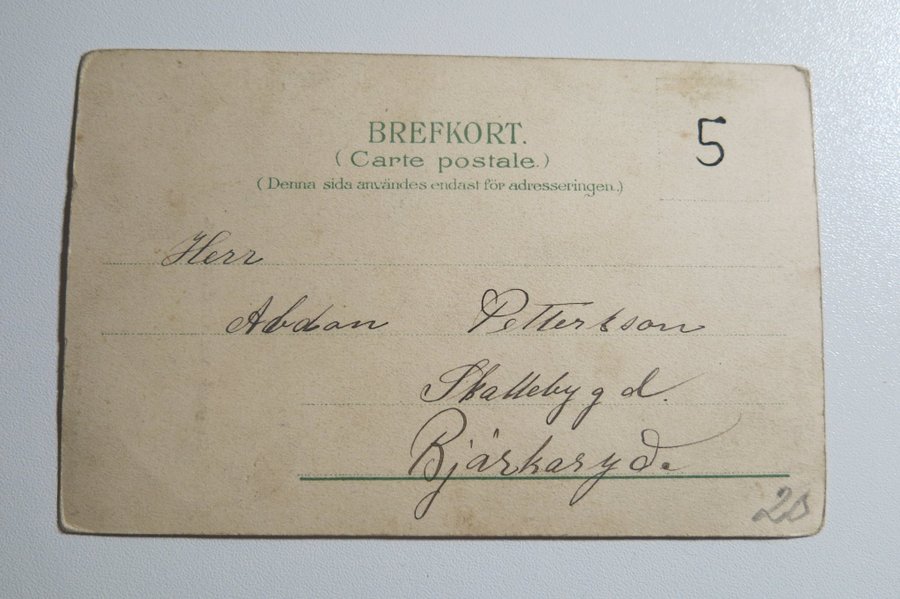 BREFKORT.
(Carte postale.)
(Denna sida användes endast för adresseringen.)
5
Herr
Abdon Pettersson
Skallebygd.
Bjärkaryd.